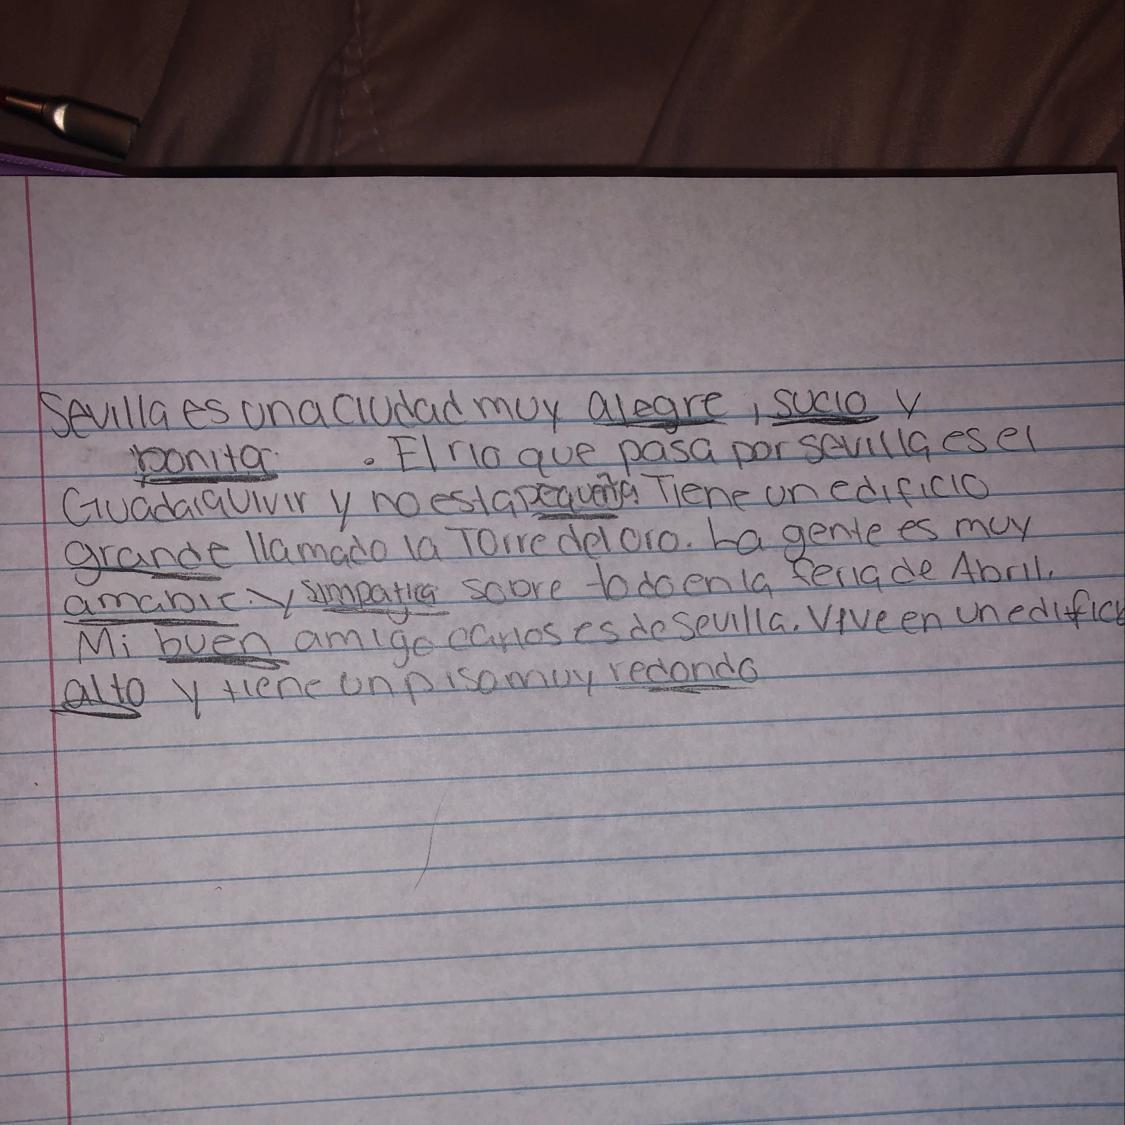 Sevilla es una ciudad muy alegre, sucio y
bonita. El rio que pasa por sevilla es el
Guadalquivir y no esta pequeña. Tiene un edificio
grande llamado la Torre del oro. La gente es muy
amable. y simpatica sobre todo en la feria de Abril.
Mi buen amigo carlos es de Sevilla. Vive en un edificio
alto y tiene un piso muy redondo